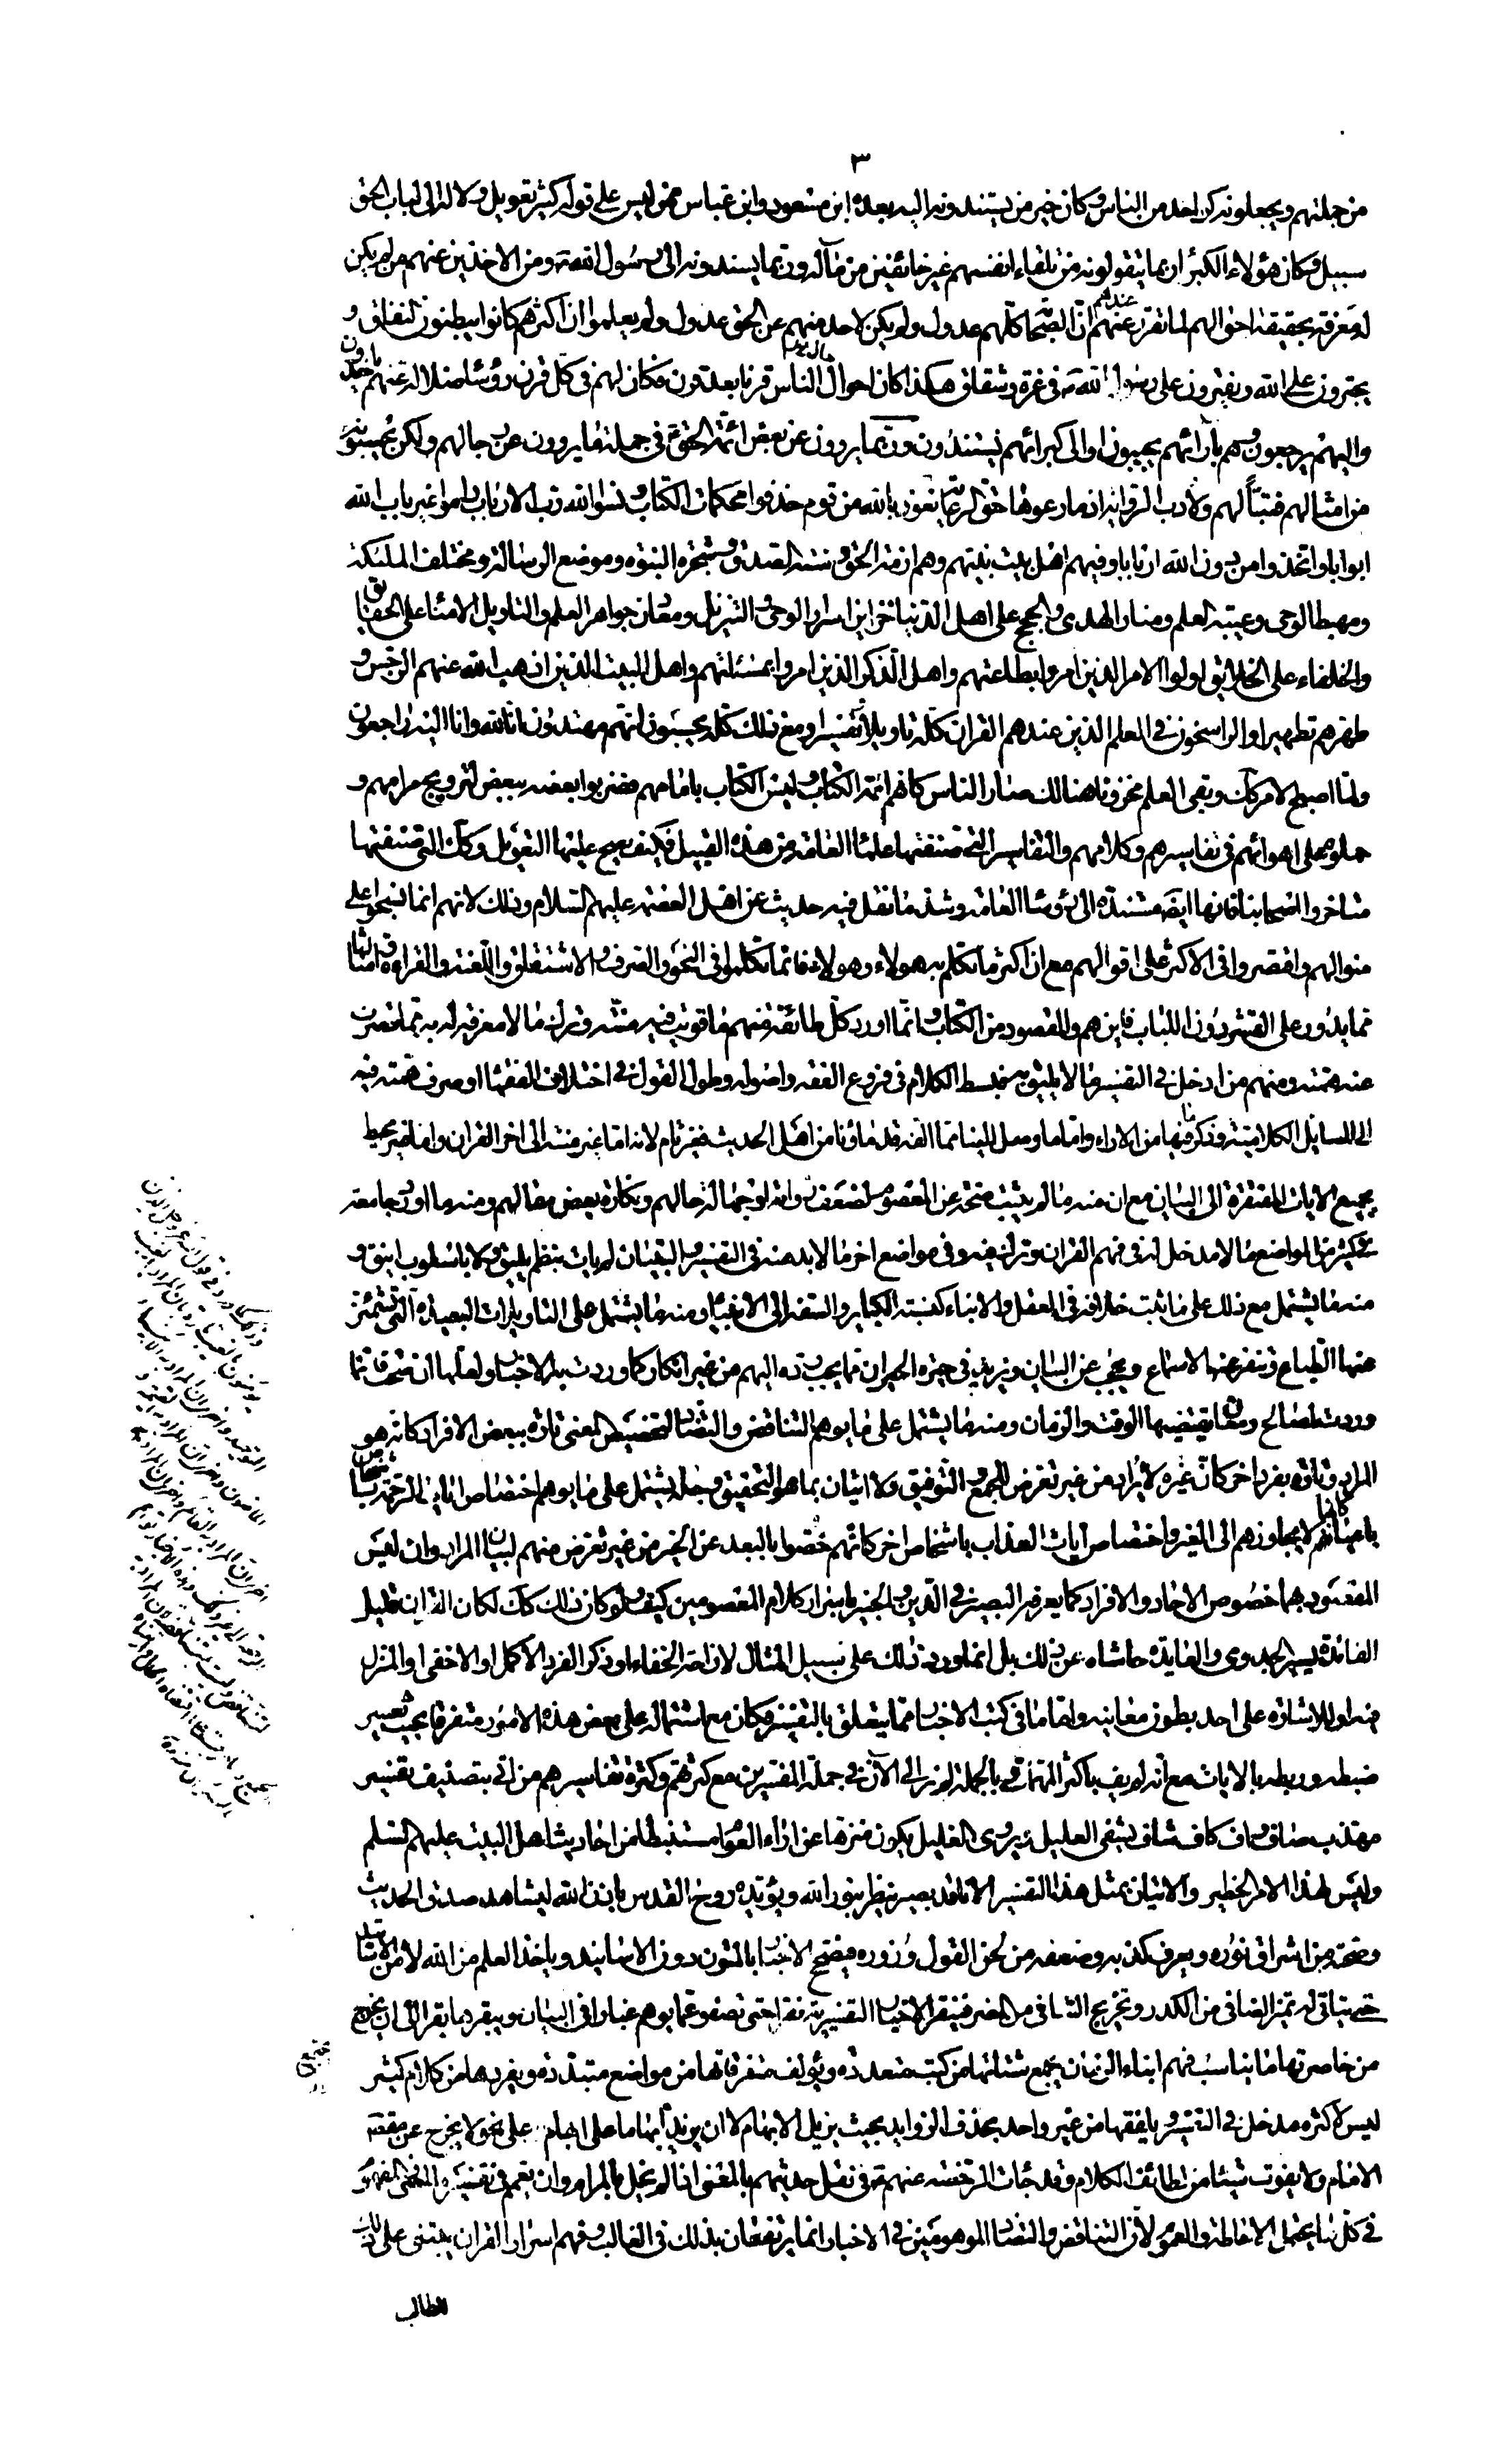 ٣
من جملتهم ويجعلونه كواحد من الناس وكان خير من يستندون اليه بعده ابن مسعود وابن عباس ممن ليس على قوله كثير تعويل ولا له الى لباب الحق
سبيل وكان هؤلاء الكبراء ربما يتقولونه من تلقاء انفسهم غير خائفين من مآله وربما يسندونه الى رسول الله ومن الاخذين عنهم من لم يكن
له معرفة بحقيقة احوالهم لما تقرر عندهم ان الصحابة كلهم عدول ولم يكن لاحد منهم عن الحق عدول ولم يعلموا ان اكثرهم كانوا يبطنون النفاق و
يجترون على الله ويفترون على رسول الله في عزة وشقاق هكذا كان احوال الناس قرنا بعد قرن فكان لهم في كل قرن رؤساء ضلالة عنهم ياخذون
واليهم يرجعون وهم بآرائهم يجيبون او الى كبرائهم يستندون وربما يروون عن بعض ائمة الحق في جملة ما يروون عن رجالهم ولكن يحسبونه
من امثالهم فتبا لهم ولادب الرواية اذ ما رعوها حق رعايتها نعوذ بالله من قوم حذفوا محكمات الكتاب ونسوا الله رب الارباب راموا غير باب الله
ابوابا واتخذوا من دون الله اربابا وفيهم اهل بيت نبيهم وهم ازمة الحق والسنة الصدق وشجرة النبوة وموضع الرسالة ومختلف الملئكة
ومهبط الوحى وعيبة العلم ومنار الهدى والحجج على اهل الدنيا خزاين اسرار الوحى والتنزيل ومعادن جواهر العلم والتاويل الامناء على الحقايق
والخلفاء على الخلايق اولوا الامر الذين امروا بطاعتهم واهل الذكر الذين امروا بمسئلتهم واهل البيت الذين اذهب الله عنهم الرجس و
طهرهم تطهيرا والراسخون في العلم الذين عندهم القران كله تاويلا وتفسيرا ومع ذلك كله يحسبون انهم مهتدون انا لله وانا اليه راجعون
ولما اصبح الامر كك وبقى العلم مخزونا هنالك صار الناس كانهم ائمة الكتاب وليس الكتاب بامامهم فضربوا بعضه ببعض لترويج مرامهم و
حملوه على اهوائهم في تفاسيرهم وكلامهم والتفاسير التي صنفتها علماء العامة من هذا القبيل فكيف يصح عليها التعويل وكك التي صنفتها
متاخروا اصحابنا فانها ايضا مستندة الى رؤساء العامة وشذ ما نقل فيه حديث عن اهل العصمة عليهم السلام وذلك لانهم انما نسجوا على
منوالهم واقتصروا في الاكثر على اقوالهم مع ان اكثر ما تكلم به هولاء وهولاء فانما تكلموا في النحو والصرف والاشتقاق واللغة والقراءة وامثالها
مما يدور على القشر دون اللباب فاين هم والمقصود من الكتاب وانما اورد كل طائفة منهم ما قويت فيه منته وترك ما لا معرفة له به مما قصرت
عنه همته ومنهم من ادخل في التفسير ما لا يليق به فبسط الكلام في فروع الفقه واصوله وطول القول في اختلاف الفقهاء او صرف همته فيه
الى المسايل الكلامية وذكر ما فيها من الاراء واما ما وصل الينا مما الفه قدماؤنا من اهل الحديث فغير تام لانه اما غير منته الى اخر القران واما غير محيط
بجميع الايات المفتقرة الى البيان مع ان منه ما لم يثبت صحته عن المعصوم لضعف رواته او جهالة حالهم ونكارة بعض مقالهم ومنه ما اورد جامعه
في كثير من المواضع ما لا مدخل له في فهم القران وترك فيه وفي مواضع اخر ما لا بد منه في التفسير والتبيان لم يات بنظم يليق ولا باسلوب انيق و
منه ما يشتمل مع ذلك على ما ثبت خلافه في العقل والانباء كنسبة الكباير والسفه الى الانبياء ومنه ما يشتمل على التاويلات البعيدة التي تشمئز
عنها الطباع وتنفر عنها الاسماع ويحجب عن البيان ويزيد في حيرة الحيران مما يجب رده اليهم من غير انكار كما وردت به الاخبار ولعلها ان صحت فانما
وردت لمصالح ومعان يقتضيها الوقت والزمان ومنه ما يشتمل على ما يوهم التناقض والتضاد لتخصيص المعنى تارة ببعض الافراد كانه هو
المراد وتارة بفرد اخر كان غيره لا يراد من غير تعرض للجمع والتوفيق ولا اتيان بما هو التحقيق وجله يشتمل على ما يوهم اختصاص ايات الرحمة باشخاص
باعيانهم كانها لا يجاوزهم الى الغير واختصاص ايات العذاب باشخاص اخر كانهم خصوا بالبعد عن الخير من غير تعرض منهم لبيان المراد وان ليس
المقصود بهما خصوص الاحاد والافراد كما يعرفه البصير في الدين والخبير باسرار كلام المعصومين كيف ولو كان ذلك كك لكان القران قليل
الفائدة يسير الجدوى والعايدة حاشاه عن ذلك بل انما ورد ذلك على سبيل المثال لازاحة الخفاء او ذكر الفرد الاكمل او الاخفى او المنزل
فيه او للاشارة على احد بطون معانيه واما ما في كتب الاخبار مما يتعلق بالتفسير فكان مع اشتماله على بعض هذه الامور متفرقا بحيث تعسر
ضبطه وربطه بالايات مع انه لم يف باكثر المهمات وبالجملة لم نر الى الآن في جملة المفسرين مع كثرتهم وكثرة تفاسيرهم من اتى بتصنيف تفسير
مهذب صاف واف كاف شاف يشفى العليل ويروى الغليل يكون منزها عن اراء العوام مستنبطا من احاديث اهل البيت عليهم السلم
وليس لهذا الامر الخطير والاتيان بمثل هذا التفسير الا ناقد بصير ينظر بنور الله ويؤيده روح القدس باذن الله ليشاهد صدق الحديث
وصحته من اشراق نوره ويعرف كذبه وضعفه من لحن القول وزوره فيصحح الاخبار بالمتون دون الاسانيد وياخذ العلم من الله لا من الاساتيد
حتى يتاتى له تميز الصافى من الكدر وتخريج الشافى من المضر فينقر الاخبار التفسيرية نقرا حتى تصفو عما يوهم غبارا في البيان ويبقرها بقرا الى ان يخرج
من خاصرتها ما يناسب فهم ابناء الزمان يجمع شتاتها من كتب متعددة ويؤلف متفرقاتها من مواضع متبددة ويفردها من كلام كثير
ليس لاكثره مدخل في التفسير ويلفقها من غير واحد بحذف الزوايد بحيث يزيل الابهام لا ان يزيد ابهاما على ابهام على نحو لا يخرج عن مقصد
الامام ولا يفوت شيئا من لطائف الكلام وقد جاءت الرخصة عنهم في نقل حديثهم بالمعنى اذا لم يخل بالمرام وان يعمم في تفسيره المعنى المفهوم
في كل ما يحتمل الاحاطة والعموم لان التناقض والتضاد الموهومين في الاخبار انما يرتفعان بذلك في الغالب وفهم اسرار القران يبتنى على ذلك
للطالب